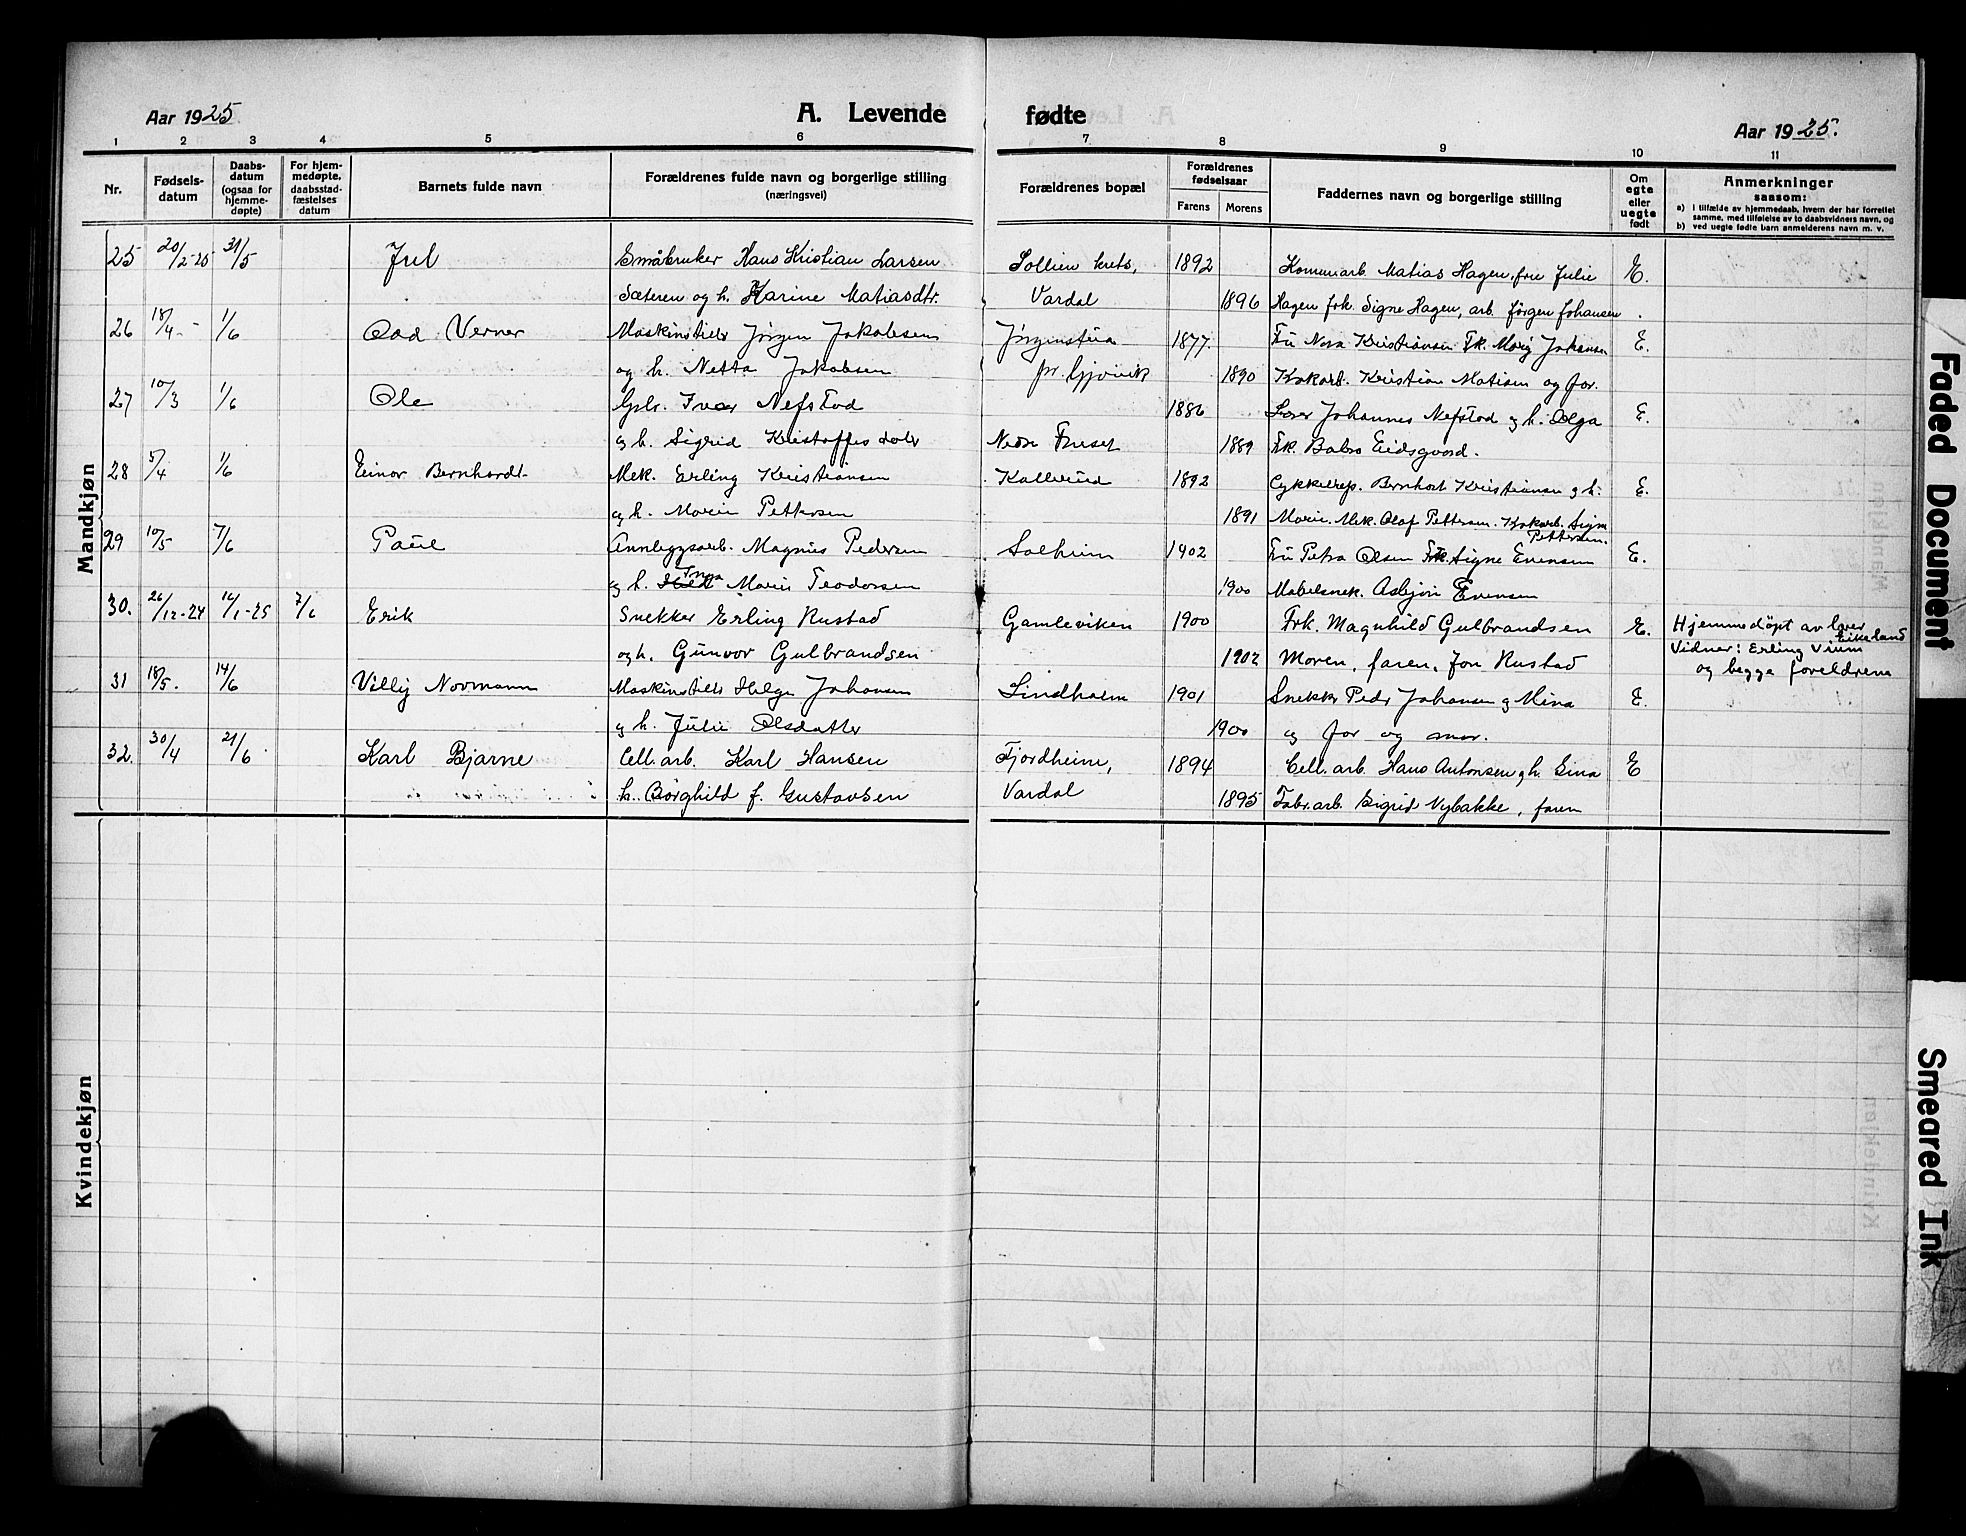 Aar 1925
A. Levende fødte
Aar 1925.
1 2 3 4 5 6 7 8 9 10 11
Nr.
Fødsels-
datum
Daabs-
datum
(ogsaa for
hjemme-
døpte)
For hjem-
medøpte,
daabsstad-
fæstelses
datum
Barnets fulde navn
Forældrenes fulde navn og borgerlige stilling
(næringsvei)
Forældrenes bopæl
Forældrenes
fødselsaar
Farens Morens
Faddernes navn og borgerlige stilling
Om
egte
eller
uegte
født
Anmerkninger
saasom:
a) i tilfælde av hjemmedaab, hvem der har forrettet
samme, med tilføielse av to daabsvidners navn, og
b) ved uegte fødte barn anmelderens navn m. v.
Mandkjøn
25 20/2-25 31/5 Juel Småbruker Hans Kristian Larsen Sollien krets, 1892 Kommarb. Matias Hagen, fru Julie E.
Sæteren og h. Karine Matiasdtr. Vardal 1896 Hagen frk. Signe Hagen, arb. Jørgen Johansen.
26 18/4- 1/6 Odd Verner Maskinstiler Jørgen Jakobsen Jørgenstua 1877 Fru Nora Kristiansen Frk. Marg Johansen E.
og h. Netta Jakobsen pr. Gjøvik 1890 Kokarb. Kristian Matisen og far.
27 10/3 1/6 Ole Gbr. Ivar Nefstad 1886 Lærer Johannes Nefstad og h. Olga E.
og h. Sigrid Kristoffersdater Nedre Bruset 1889 Frk. Babro Eidsgaard.
28 5/4 1/6 Einar Bernhardt Mek. Erling Kristiansen Kallerud 1892 Cykkelrep. Bernhart Kristiansen og h. E.
og h. Marie Pettersen 1891 Marie. Mek. Olaf Pettersen. Kokarb. Signe
Pettersen.
29 10/5 7/6 Paul Annleggsarb. Magnus Pedersen Solheim 1902 Fru Petra Olsen Frk Signe Evensen E.
og h. Inga Marie Teodorsen 1900 Møbelsnek. Asbjørn Evensen
30. 26/12-24 16/1-25 7/6 Erik Snekker Erling Rustad Gamleviken 1900 Frk. Magnhild Gulbrandsen E. Hjemmedöpt av lærer
Eikeland
og h. Gunvor Gulbrandsen 1902 Moren, faren, Jon Rustad Vidner: Erling Vium
og begge foreldrene
31 18/5. 14/6 Villy Normann Maskinstiler Helge Johansen Lindholm 1901 Snekker Peder Johansen og Mina E
og h. Julie Olsdatter 1900 og far og mor.
32. 30/4 21/6 Karl Bjarne Cell. arb. Karl Hansen Fjordheim, 1894 Cell. arb. Hans Antonsen og h. Gina E
h. Borghild f. Gustavsen Vardal 1895 Fabr.arb. Sigrid Nybakke, faren
Kvindekjøn
Faded Document
Smeared Ink